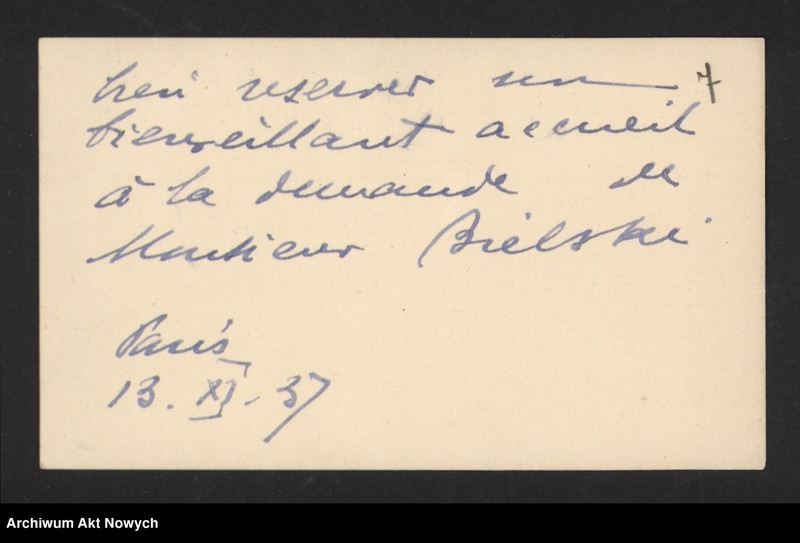 bien reserver un 7
bienveillant accueil
à la demande de
Monsieur Bielski
Paris
13. XI. 37
Archiwum Akt Nowych